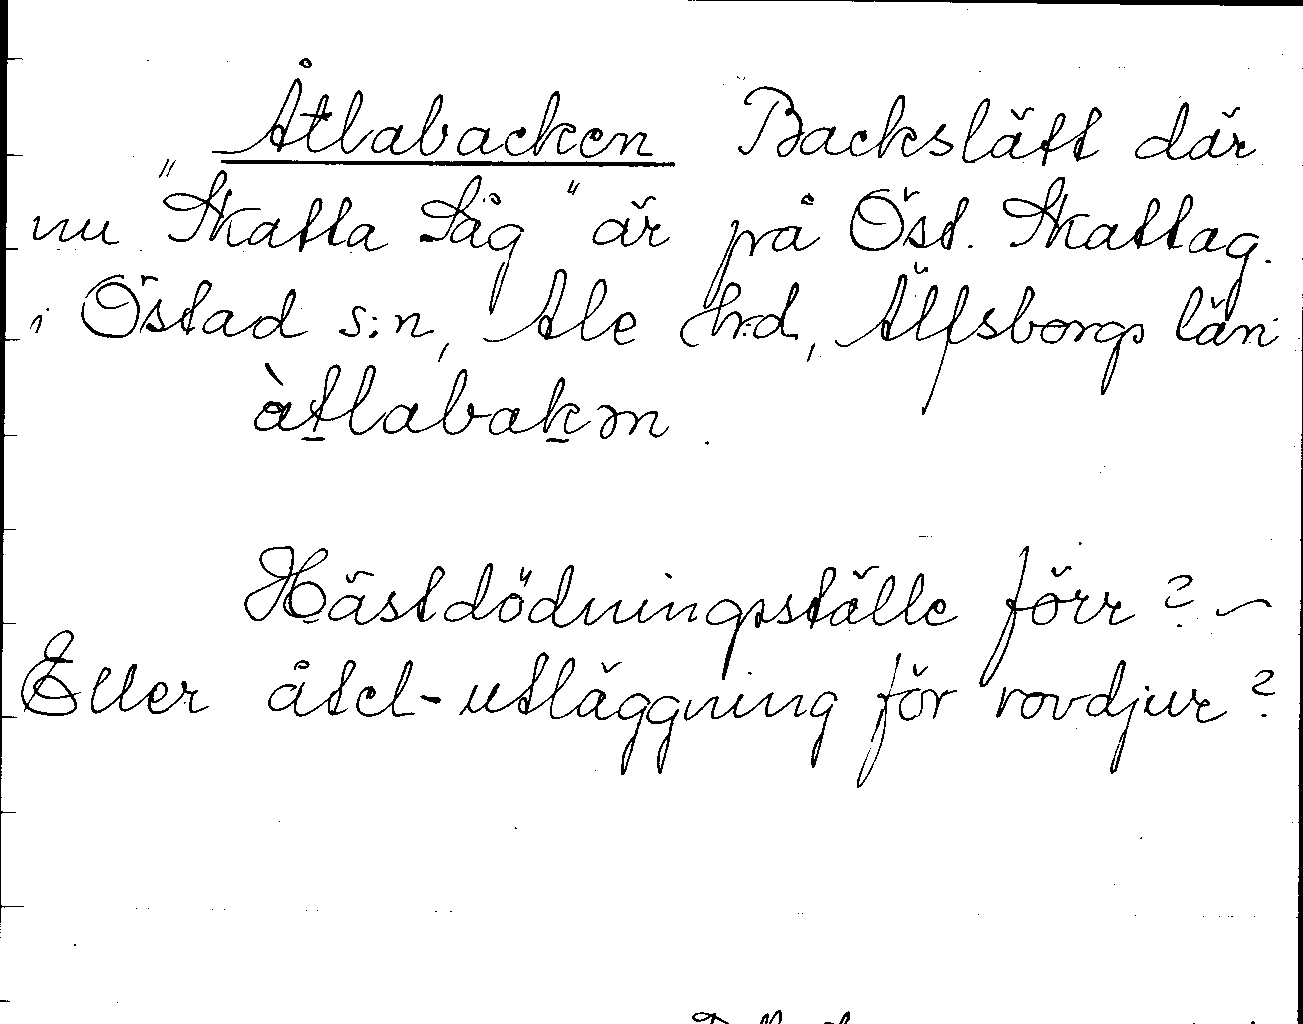 Åtlabacken Backslätt där
nu "Skatla Såg" är på Öst. Skattag.
i Östad s:n, Ale h:d, Älfsborgs län
àtlabakən.
Hästdödningsställe förr? –
Eller åtel-utläggning för rovdjur?